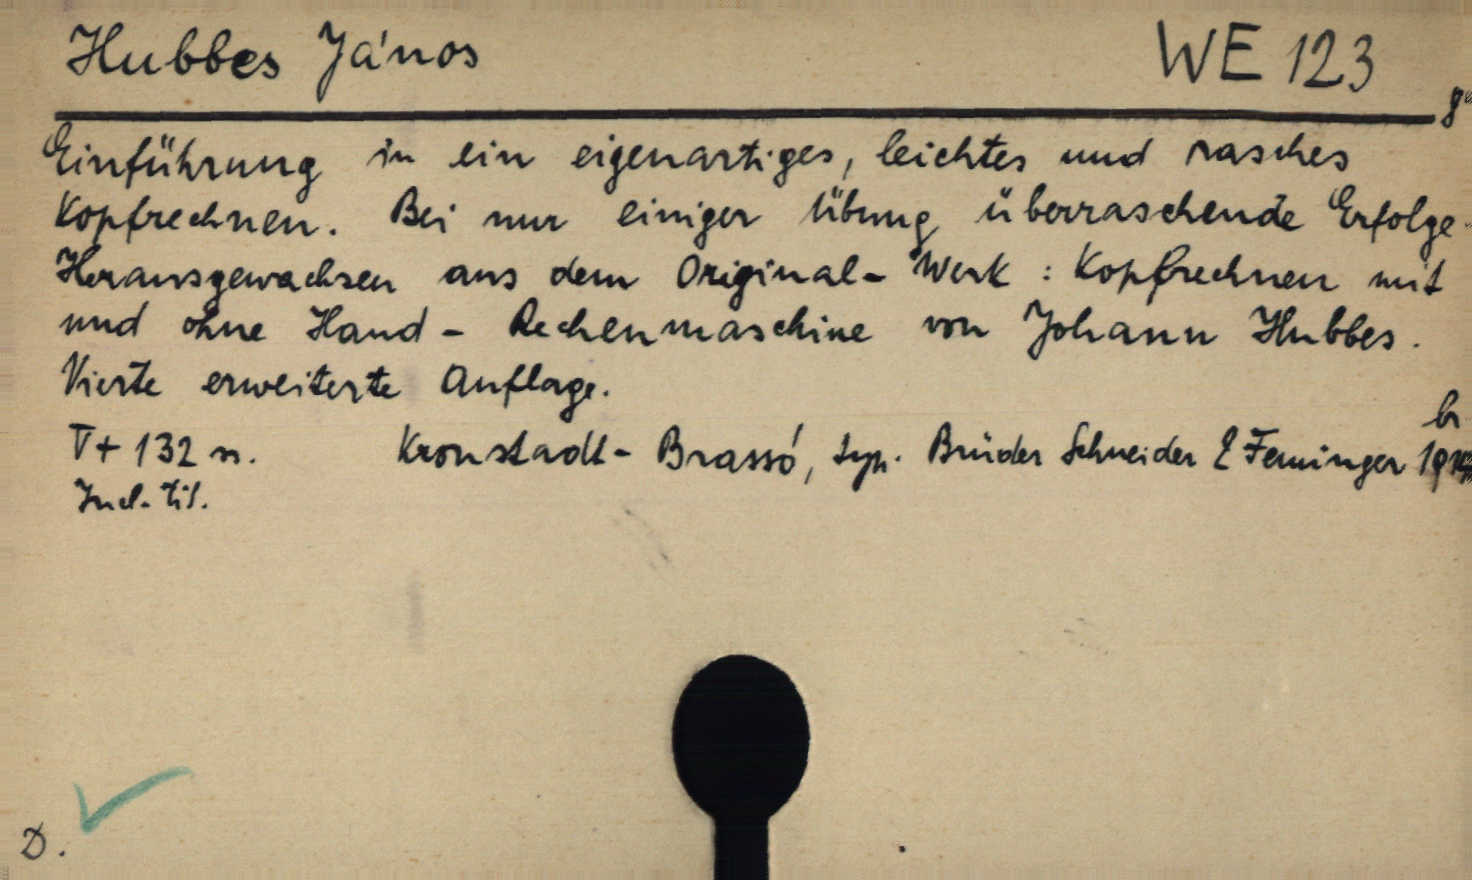 Hubbes János WE 123
8°
Einführung in ein eigenartiges, leichtes und rasches
Kopfrechnen. Bei nur einiger Übung überraschende Erfolge.
Herausgewachsen aus dem Original-Werk: Kopfrechnen mit
und ohne Hand-Rechenmaschine von Johann Hubbes.
Vierte erweiterte Auflage.
br
V+132 n. Kronstadt-Brassó, typ. Brüder Schneider & Feminger
Incl. tit.
D.